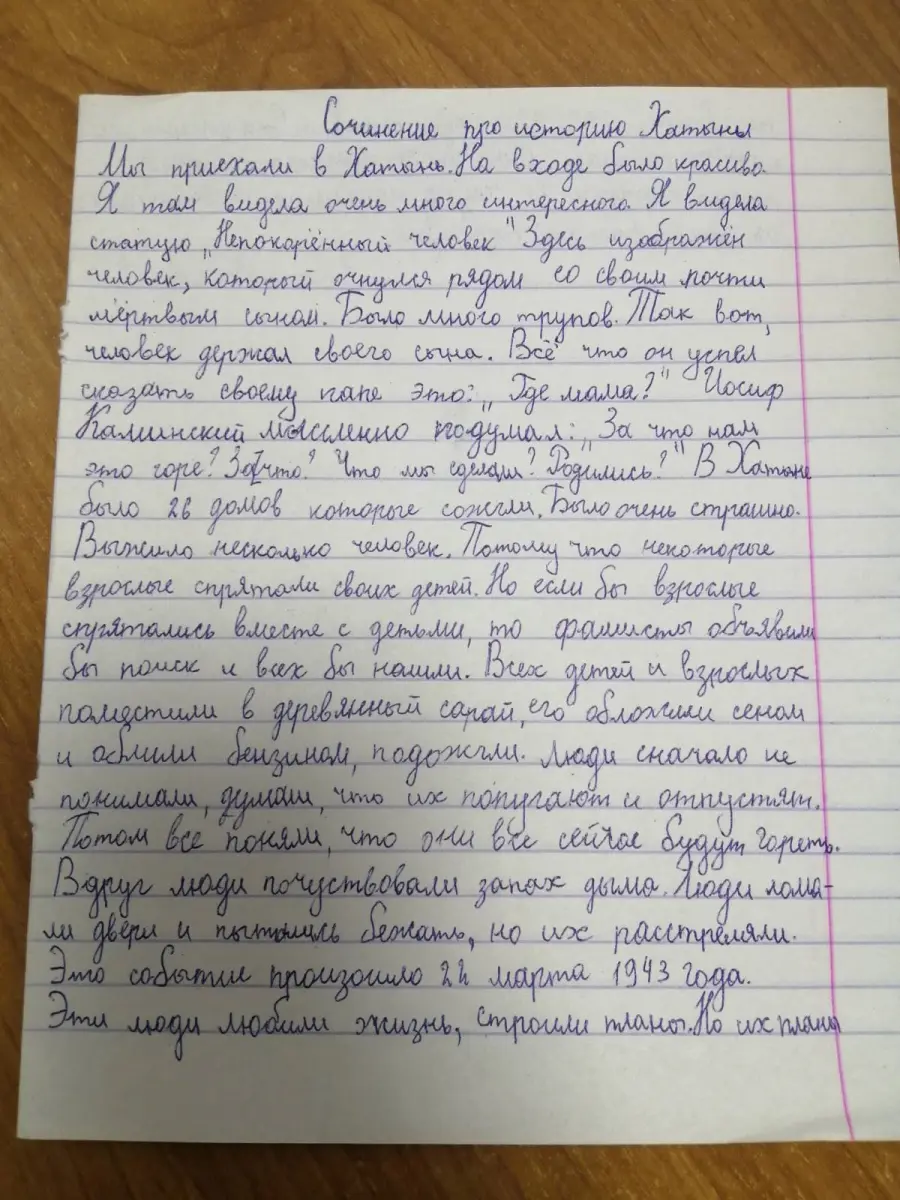 Сочинение про историю Хатыны
Мы приехали в Хатынь. На входе было красиво.
Я там видела очень много интересного. Я видела
статую „Непокорённый человек" Здесь изображён
человек, который очнулся рядом со своим почти
мёртвым сыном. Было много трупов. Так вот,
человек держал своего сына. Всё что он успел
сказать своему папе это: „Где мама?" Иосиф
Каминский мысленно подумал: „За что нам
это горе? За что? Что мы сделали? Родились?" В Хатыне
было 26 домов которые сожгли. Было очень страшно.
Выжило несколько человек. Потому что некоторые
взрослые спрятали своих детей. Но если бы взрослые
спрятались вместе с детьми, то фашисты объявили
бы поиск и всех бы нашли. Всех детей и взрослых
поместили в деревянный сарай, его обложили сеном
и облили бензином, подожгли. Люди сначало не
понимали, думали, что их попугают и отпустят.
Потом все поняли, что они все сейчас будут гореть.
Вдруг люди почуствовали запах дыма. Люди лома-
ли двери и пытались бежать, но их расстреляли.
Это событие произошло 22 марта 1943 года.
Эти люди любили жизнь, строили планы. Но их планы